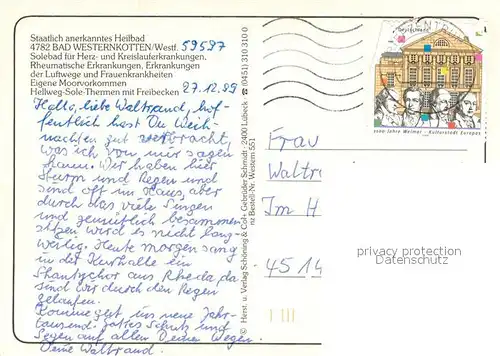 Staatlich anerkanntes Heilbad
4782 BAD WESTERNKOTTEN/Westf. 59597
Solebad für Herz- und Kreislauferkrankungen,
Rheumatische Erkrankungen, Erkrankungen
der Luftwege und Frauenkrankheiten
Eigene Moorvorkommen
Hellweg-Sole-Thermen mit Freibecken 27.12.99
Hallo, liebe Waltraud, hof-
fentlich hast Du Weih-
nachten gut verbracht,
was ich von mir sagen
kann. Wir haben hier
Sturm und Regen und
sind oft im Haus, aber
durch das viele Singen
und gemütlich beisammen
sitzen wird es nicht lang-
weilig. Heute morgen sang
in der Kurhalle ein
Shantychor aus Rheda, da
sind wir durch den Regen
gelaufen.
Komme gut ins neue Jahr-
tausend. Gottes Schutz und
Segen auf allen Deinen Wegen.
Deine Waltraud.
© Herst. u. Verlag Schöning & Co + Gebrüder Schmidt · 2400 Lübeck · ☎ (0451) 31 03 10
Bestell-Nr. Western 551
Deutschland
1100 Jahre Weimar - Kulturstadt Europas
Frau
Waltr
Im H
4514
privacy protection
Datenschutz